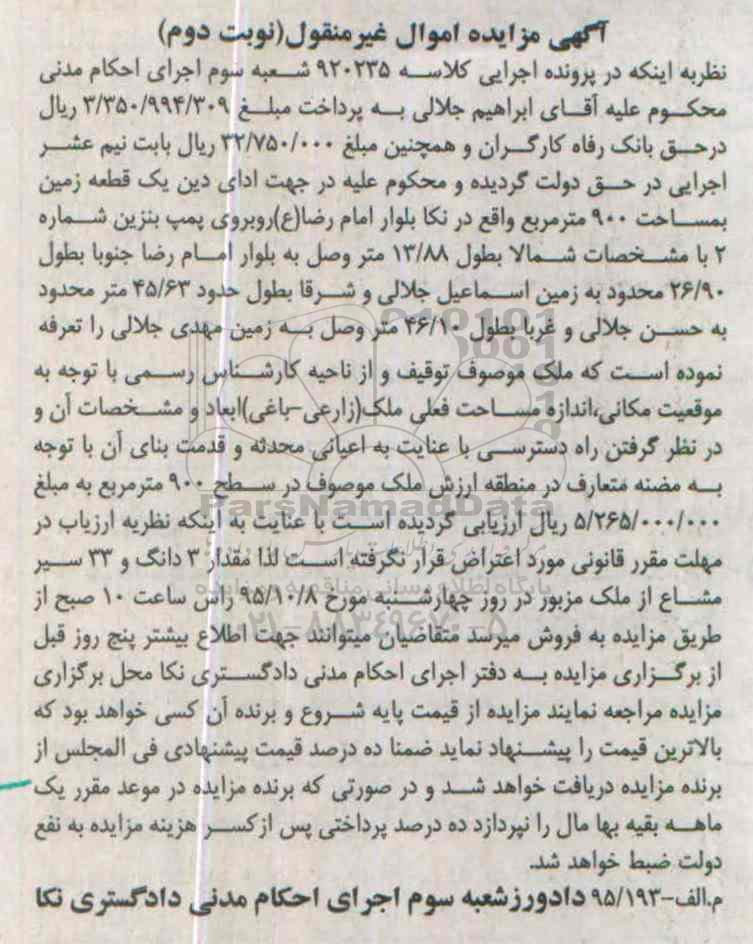 آگهی مزایده اموال غیرمنقول(نوبت دوم)
نظربه اینکه در پرونده اجرایی کلاسه ۹۲۰۲۳۵ شعبه سوم اجرای احکام مدنی
محکوم علیه آقای ابراهیم جلالی به پرداخت مبلغ ۳/۳۵۰/۹۹۴/۳۰۹ ریال
درحق بانک رفاه کارگران و همچنین مبلغ ۳۲/۷۵۰/۰۰۰ ریال بابت نیم عشر
اجرایی در حق دولت گردیده و محکوم علیه در جهت ادای دین یک قطعه زمین
بمساحت ۹۰۰ مترمربع واقع در نکا بلوار امام رضا(ع)روبروی پمپ بنزین شماره
۲ با مشخصات شمالا بطول ۱۳/۸۸ متر وصل به بلوار امام رضا جنوبا بطول
۲۶/۹۰ محدود به زمین اسماعیل جلالی و شرقا بطول حدود ۴۵/۶۳ متر محدود
به حسن جلالی و غربا بطول ۴۶/۱۰ متر وصل به زمین مهدی جلالی را تعرفه
نموده است که ملک موصوف توقیف و از ناحیه کارشناس رسمی با توجه به
موقعیت مکانی،اندازه مساحت فعلی ملک(زارعی-باغی)ابعاد و مشخصات آن و
در نظر گرفتن راه دسترسی با عنایت به اعیانی محدثه و قدمت بنای آن با توجه
به مضنه متعارف در منطقه ارزش ملک موصوف در سطح ۹۰۰ مترمربع به مبلغ
۵/۲۶۵/۰۰۰/۰۰۰ ریال ارزیابی گردیده است با عنایت به اینکه نظریه ارزیاب در
مهلت مقرر قانونی مورد اعتراض قرار نگرفته است لذا مقدار ۳ دانگ و ۳۳ سیر
مشاع از ملک مزبور در روز چهارشنبه مورخ ۹۵/۱۰/۸ راس ساعت ۱۰ صبح از
طریق مزایده به فروش میرسد متقاضیان میتوانند جهت اطلاع بیشتر پنج روز قبل
از برگزاری مزایده به دفتر اجرای احکام مدنی دادگستری نکا محل برگزاری
مزایده مراجعه نمایند مزایده از قیمت پایه شروع و برنده آن کسی خواهد بود که
بالاترین قیمت را پیشنهاد نماید ضمنا ده درصد قیمت پیشنهادی فی المجلس از
برنده مزایده دریافت خواهد شد و در صورتی که برنده مزایده در موعد مقرر یک
ماهه بقیه بها مال را نپردازد ده درصد پرداختی پس ازکسر هزینه مزایده به نفع
دولت ضبط خواهد شد.
م.الف-۹۵/۱۹۳ دادورزشعبه سوم اجرای احکام مدنی دادگستری نکا
ParsNamadData
۰۲۱-۸۸۳۴۹۶۷۰-۵